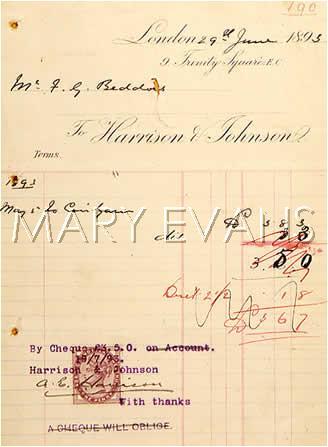 190
London 29th June 1893
9, Trinity Square, E.C.
Mr. F. G. Beddoes
To Harrison & Johnson
Terms
1893
May 5 To
£ 3 8 3
MARY EVANS
3
1 8
£ 3 6 7
By Cheque £3.5.0. on Account.
19/7/93.
Harrison & Johnson
With thanks
A CHEQUE WILL OBLIGE.